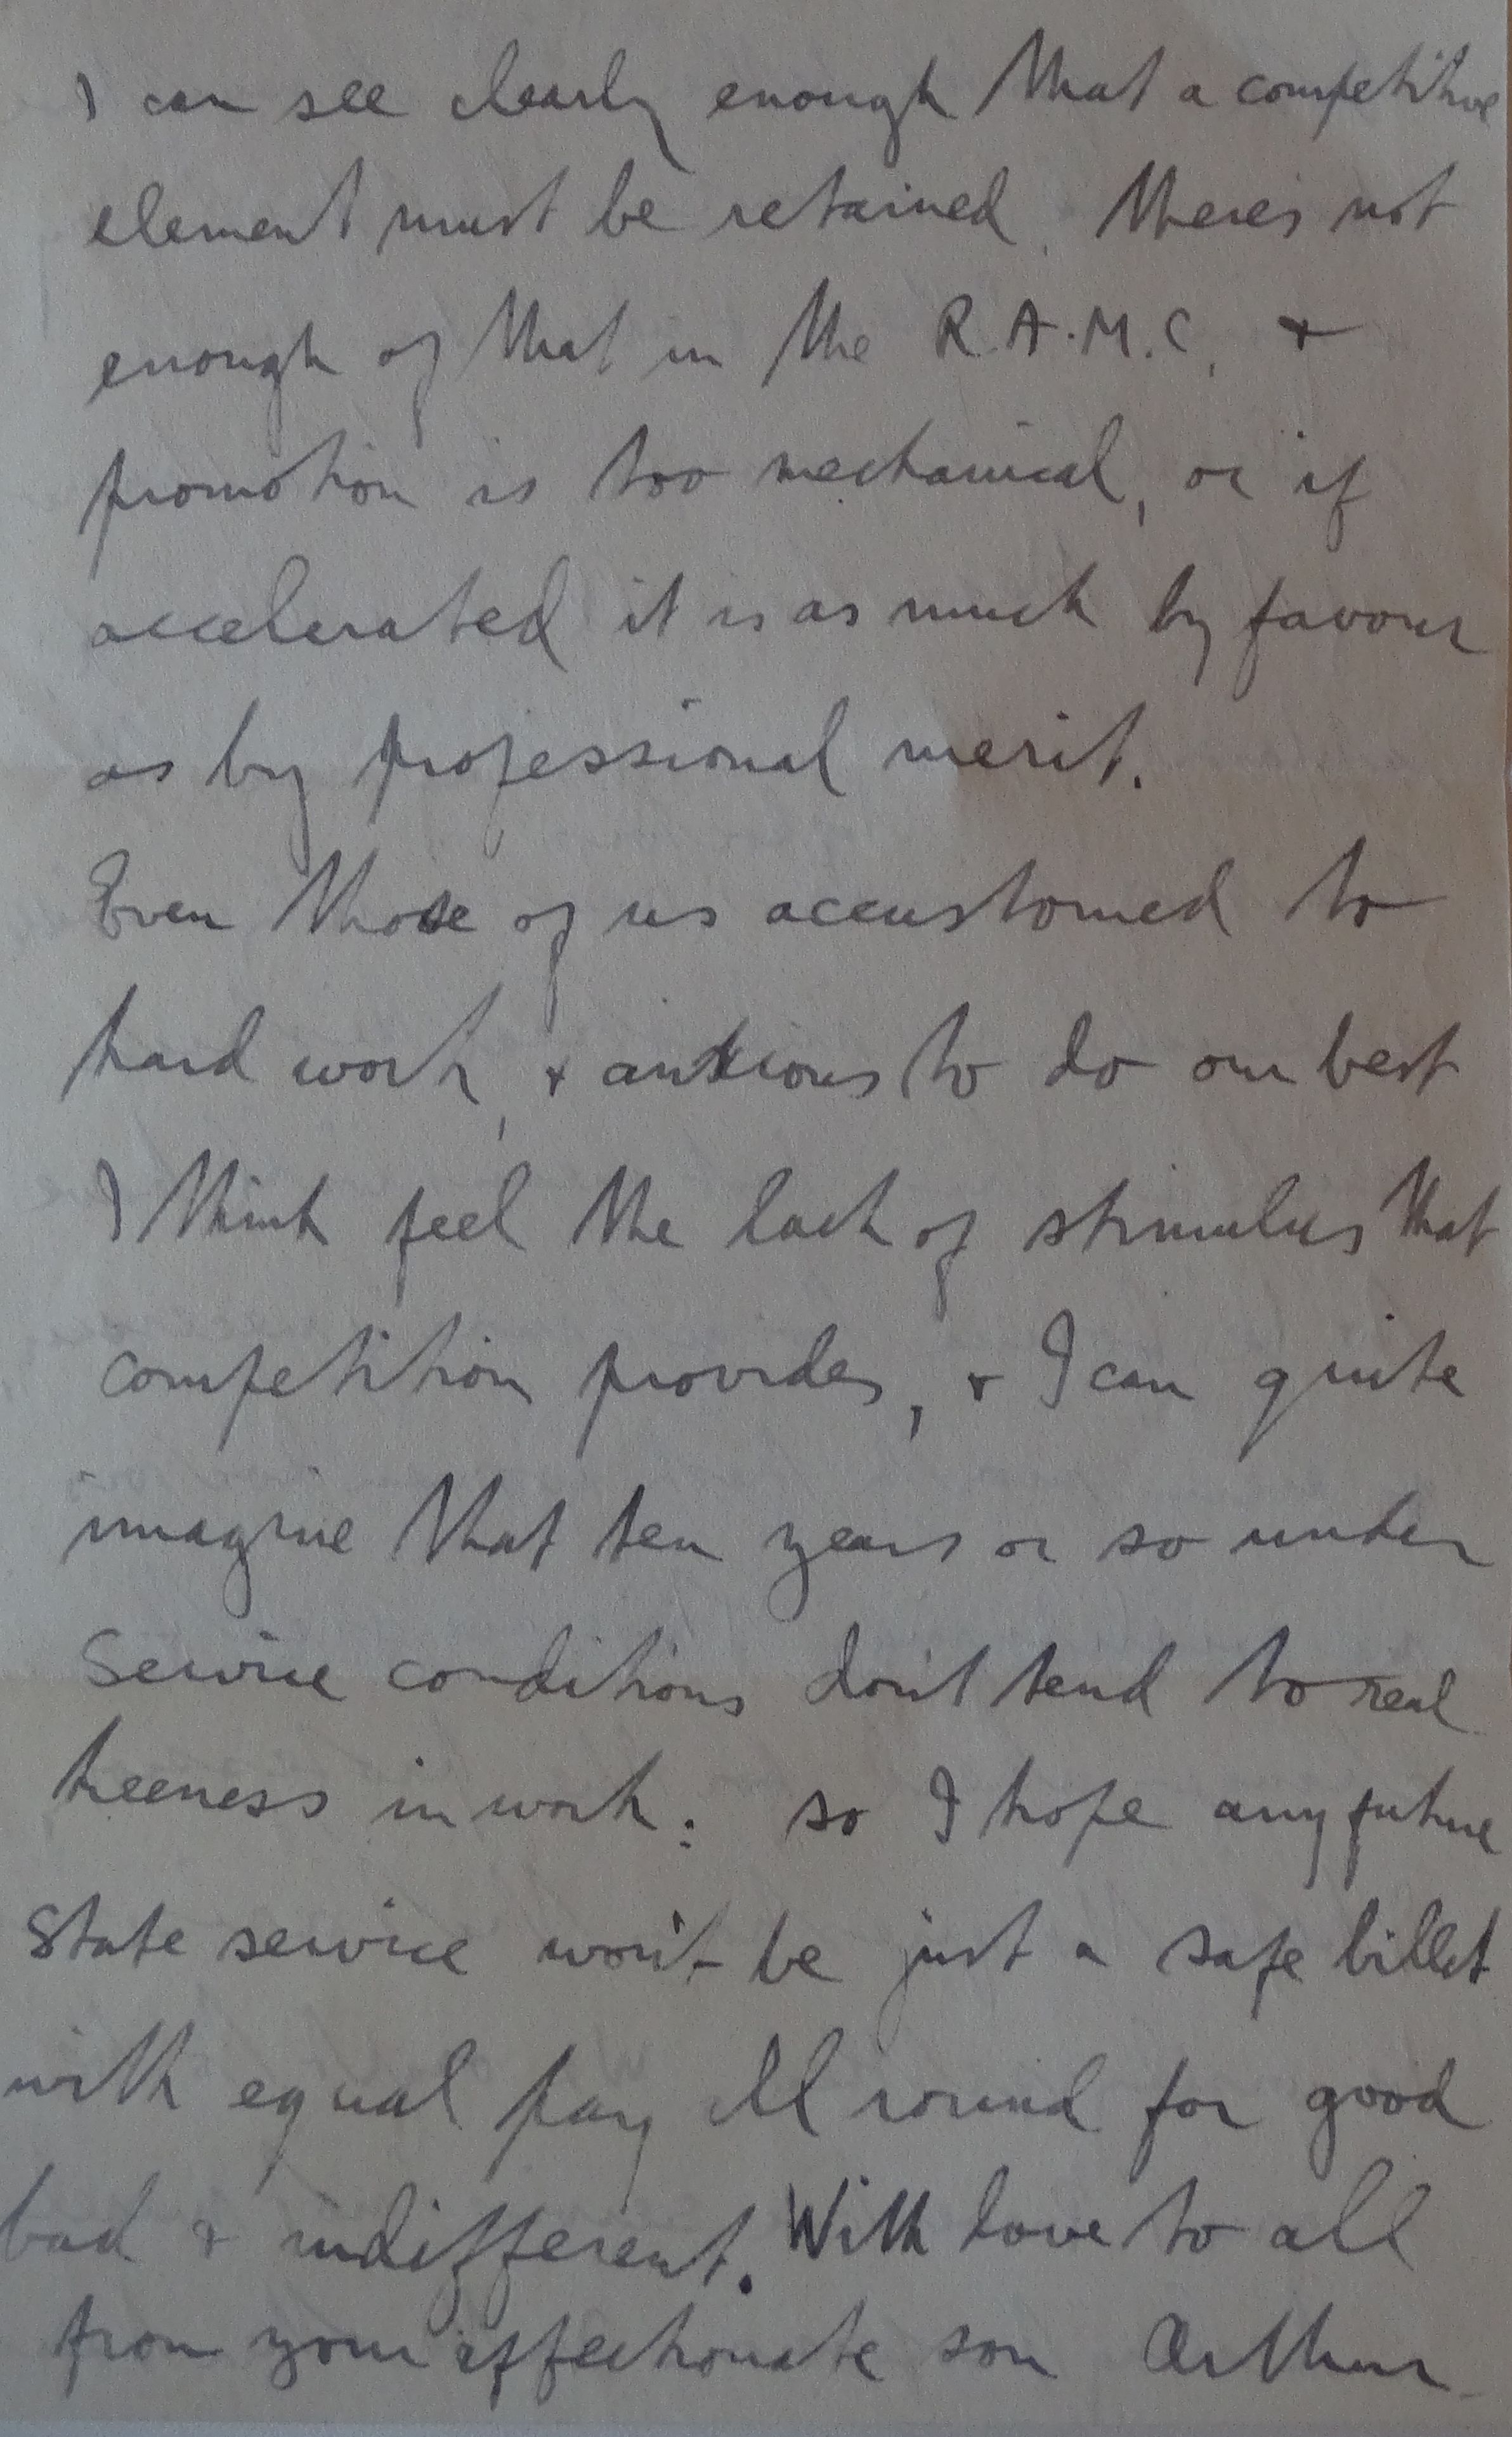 I can see clearly enough that a competitive
element must be retained. There's not
enough of that in the R.A.M.C. &
promotion is too mechanical, or if
accelerated it is as much by favour
as by professional merit.
Even those of us accustomed to
hard work, & anxious to do our best
I think feel the lack of stimulus that
competition provides, & I can quite
imagine that ten years or so under
Service conditions don't tend to real
keeness in work: so I hope any future
State service won't be just a safe billet
with equal pay all round for good
bad & indifferent. With love to all
from your affectionate son Arthur.